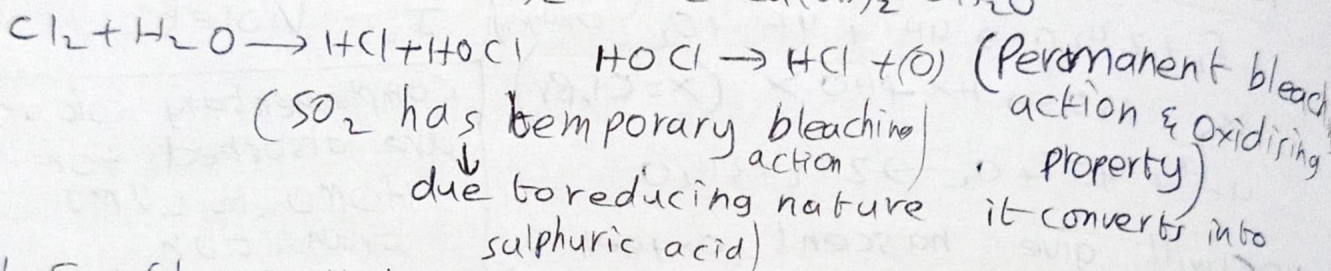 Cl₂ + H₂O → HCl + HOCl HOCl → HCl + (O) (Permanent bleach
action & Oxidising
property)
(SO₂ has temporary bleaching
action
↓
due to reducing nature it converts into
sulphuric acid)